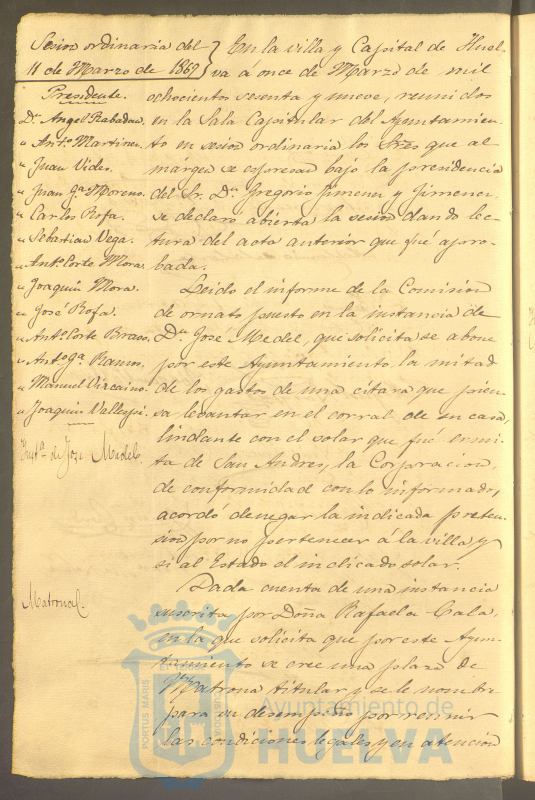 Sesion ordinaria del
11 de Marzo de 1869
Presidente.
Dn. Angel Rabadan.
" Anto. Martinez.
" Juan Vides.
" Juan Ga. Moreno.
" Carlos Rofa.
" Sebastian Vega.
" Anto. Corte Mora.
" Joaquin Mora.
" José Rofa.
" Anto. Corte Bravo.
" Anto. Ga. Ramos.
" Manuel Vizcaino.
" Joaquin Vallejo.
Insta. de Jose Medel
Matrona.
En la villa y Capital de Huel-
va á once de Marzo de mil
ochocientos sesenta y nueve, reunidos
en la Sala Capitular del Ayuntamien-
to en sesion ordinaria los Sres que al
márgen se espresan bajo la presidencia
del Sr. Dn. Gregorio Jimenez y Jimenez
se declaró abierta la sesion dando lec-
tura del acta anterior que fué apro-
bada.
Leido el informe de la Comision
de ornato puesto en la instancia de
Dn. José Medel, que solicita se abone
por este Ayuntamiento la mitad
de los gastos de una citara que pien-
sa levantar en el corral de su casa,
lindante con el solar que fué ermi-
ta de San Andres, la Corporacion,
de conformidad con lo informado,
acordó denegar la indicada preten-
sion por no pertenecer á la villa y
si al Estado el indicado solar.
Dada cuenta de una instancia
suscrita por Doña Rafaela Cala,
en la que solicita que por este Ayun-
tamiento se cree una plaza de
Matrona titular y se le nombre
para su desempeño por reunir
las condiciones legales y en atencion
PORTUS MARIS
Ayuntamiento de
HUELVA